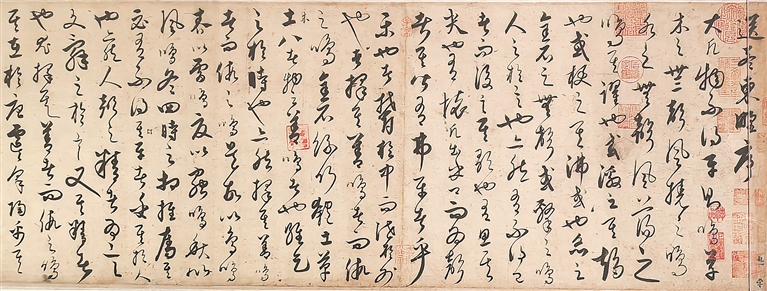 送孟東野序
大凡物不得平則鳴草
木之無聲風撓之鳴
水之無聲風蕩之
鳴其躍也或激之其趨
也或梗之其沸也或炙之
金石之無聲或擊之鳴
人之於言也亦然有不得已
者而後言其歌也有思其
哭也有懷凡出口而為聲
者其皆有弗平者乎
樂也者鬱於中而泄於外
也者擇其善鳴者而假
之鳴金石絲竹匏土革
木八者物之善鳴者也維天
之於時也亦然擇其善鳴
者而假之鳴是故以鳥鳴
春以雷鳴夏以蟲鳴秋以
風鳴冬四時之相推奪其
必有不得其平者乎其於人
也亦然人聲之精者為言
文辭之於言又其精者
也尤擇其善者而假之鳴
其在於唐虞咎陶禹其